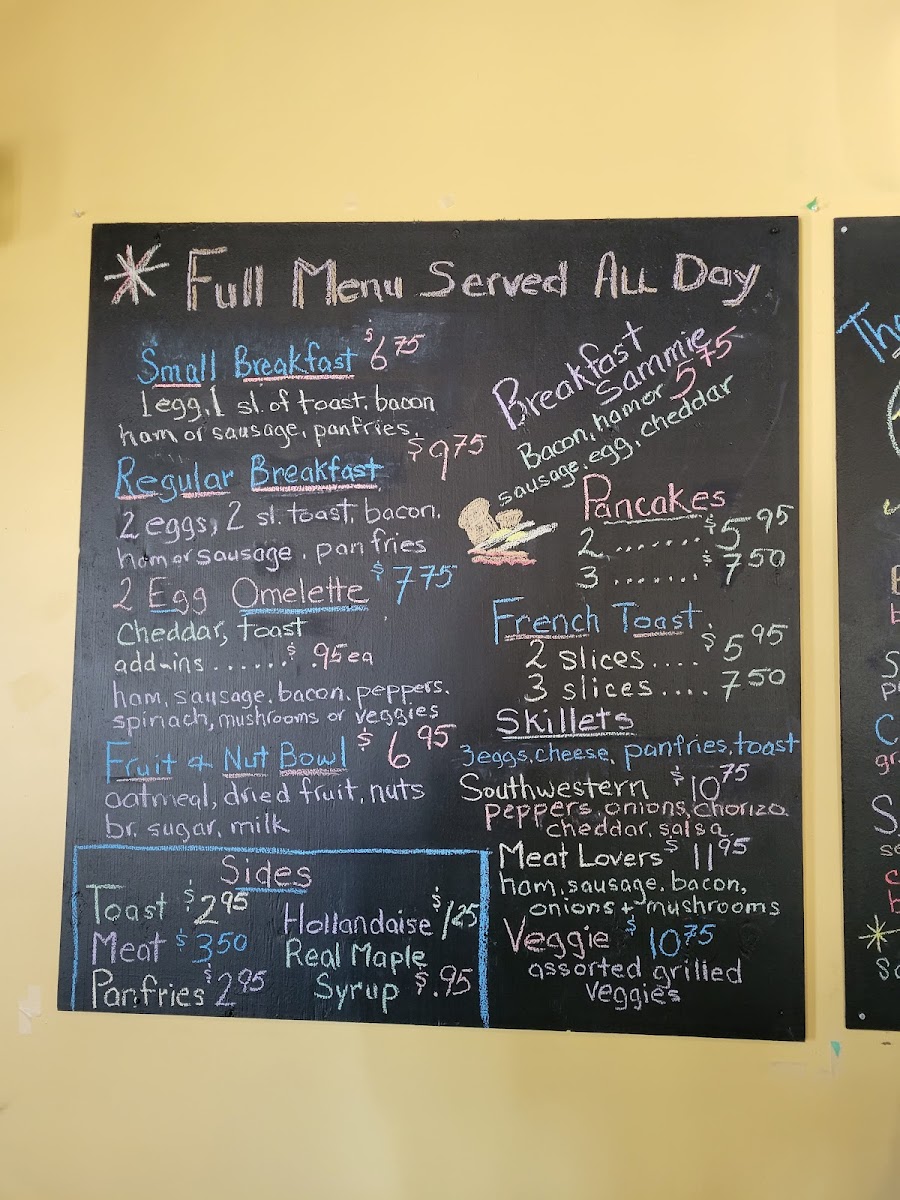 * Full Menu Served All Day
Small Breakfast $6.75
1 egg, 1 sl. of toast, bacon
ham or sausage, panfries.
Regular Breakfast $9.75
2 eggs, 2 sl. toast, bacon,
ham or sausage, pan fries
2 Egg Omelette $7.75
Cheddar, toast
add-ins ...... $.95ea
ham, sausage, bacon, peppers,
spinach, mushrooms or veggies
Fruit & Nut Bowl $6.95
oatmeal, dried fruit, nuts
br. sugar, milk
Sides
Toast $2.95
Meat $3.50
Panfries $2.95
Hollandaise $1.25
Real Maple
Syrup $.95
Breakfast
Sammie
Bacon, ham or 5.75
sausage, egg, cheddar
Pancakes
2 ....... $5.95
3 ....... $7.50
French Toast
2 slices .... $5.95
3 slices .... 7.50
Skillets
3 eggs, cheese, panfries, toast
Southwestern $10.75
peppers, onions, chorizo
cheddar, salsa
Meat Lovers $11.95
ham, sausage, bacon,
onions + mushrooms
Veggie $10.75
assorted grilled
veggies